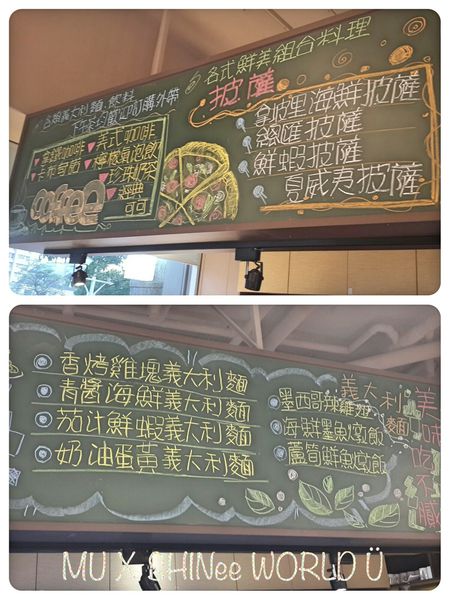 各式鮮美組合料理
各類義大利麵、飲料
下午茶均歡迎訂購外帶
披薩
拿坡里海鮮披薩
總匯披薩
鮮蝦披薩
夏威夷披薩
拿鐵咖啡
美式咖啡
卡布奇諾
檸檬氣泡飲
珍珠奶茶
經典
coffee
香烤雞塊義大利麵
青醬海鮮義大利麵
茄汁鮮蝦義大利麵
奶油蛋黃義大利麵
義大利麵
墨西哥辣雞翅
海鮮墨魚燉飯
蘆筍鮮魚燉飯
美味吃不膩
MU X SHINee WORLD Ü